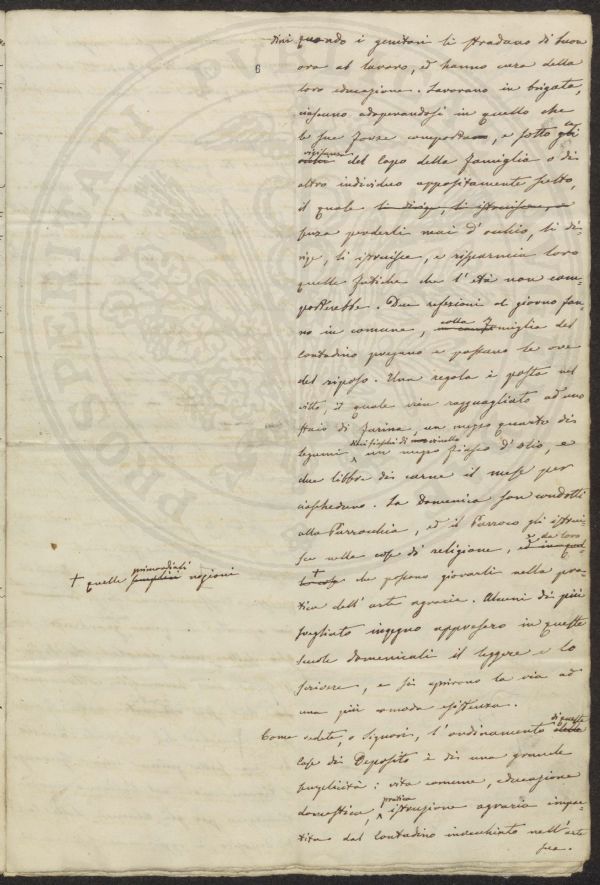 6
dini quando i genitori li stradano di buon
ora al lavoro, ed hanno cura della
loro educazione. Lavorano in brigata,
ciascuno adoperandosi in quello che
le sue forze comportano, e sotto gli
vigilanza
del capo della famiglia o di
altro individuo appositamente scelto,
il quale li dirige, li istruisce, e
senza perderli mai d'occhio, li di-
rige, li istruisce, e risparmia loro
quelle fatiche che l'età non com-
porterebbe. Due refezioni al giorno fan-
no in comune, colla famiglia del
contadino pregano e passano le ore
del riposo. Una regola è posta nel
vitto, il quale vien ragguagliato ad uno
staio di farina, un mezzo quarto di
legumi, dieci fiaschi di vinello un mezzo fiasco d'olio, e
due libbre di carne il mese per
ciascheduno. La Domenica son condotti
alla Parrocchia, ed il Parroco gli istrui-
sce nelle cose di religione, e da loro
+ quelle primordiali semplici nozioni
+ che possono giovarli nella pra-
tica dell'arte agraria. Alcuni di più
svegliato ingegno appresero in queste
scuole domenicali il leggere e lo
scrivere, e si aprirono la via ad
una più comoda esistenza.
Come vedete, o Signori, l'ordinamento di queste delle
Case di Deposito è di una grande
semplicità: vita comune, educazione
domestica, pratica istruzione agraria impar-
tita dal Contadino invecchiato nell'arte
sua.